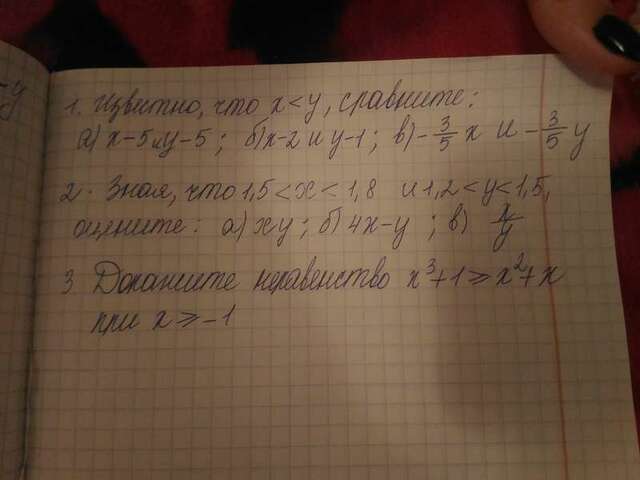 -y
1. Известно, что x < y, сравните:
а) x-5 и y-5; б) x-2 и y-1; в) -3/5 x и -3/5 y
2. Зная, что 1,5 < x < 1,8 и 1,2 < y < 1,5,
оцените: а) xy; б) 4x-y; в) x/y
3. Докажите неравенство x³+1 ⩾ x²+x
при x ⩾ -1